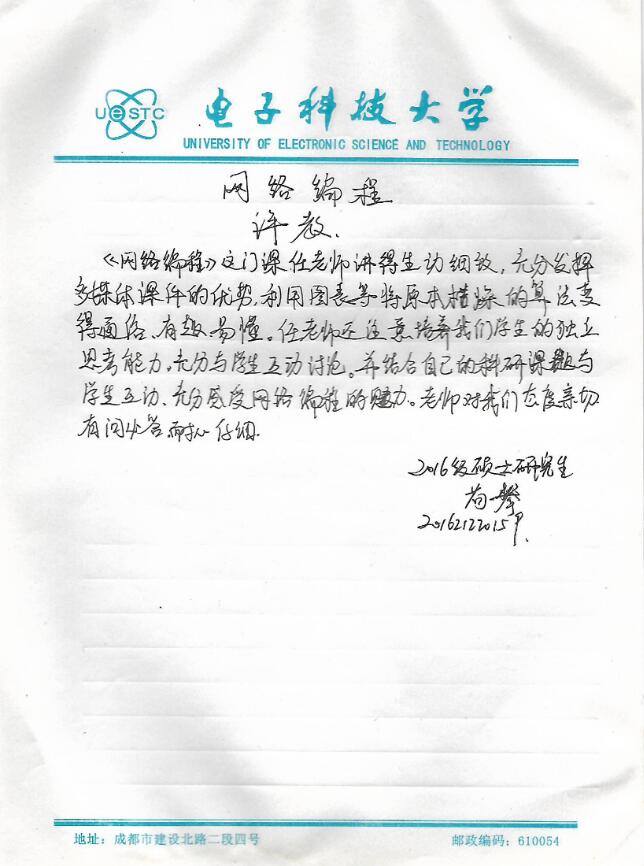 UESTC
电子科技大学
UNIVERSITY OF ELECTRONIC SCIENCE AND TECHNOLOGY
网络编程
评教.
《网络编程》这门课任老师讲得生动细致,充分发挥
多媒体课件的优势,利用图表等将原本枯燥的算法变
得通俗、有趣、易懂。任老师还注意培养我们学生的独立
思考能力。充分与学生互动讨论。并结合自己的科研课题与
学生互动、充分感受网络编程的魅力。老师对我们态度亲切
有问必答耐心仔细.
2016级硕士研究生
苟攀
20162122015
地址:成都市建设北路二段四号
邮政编码:610054